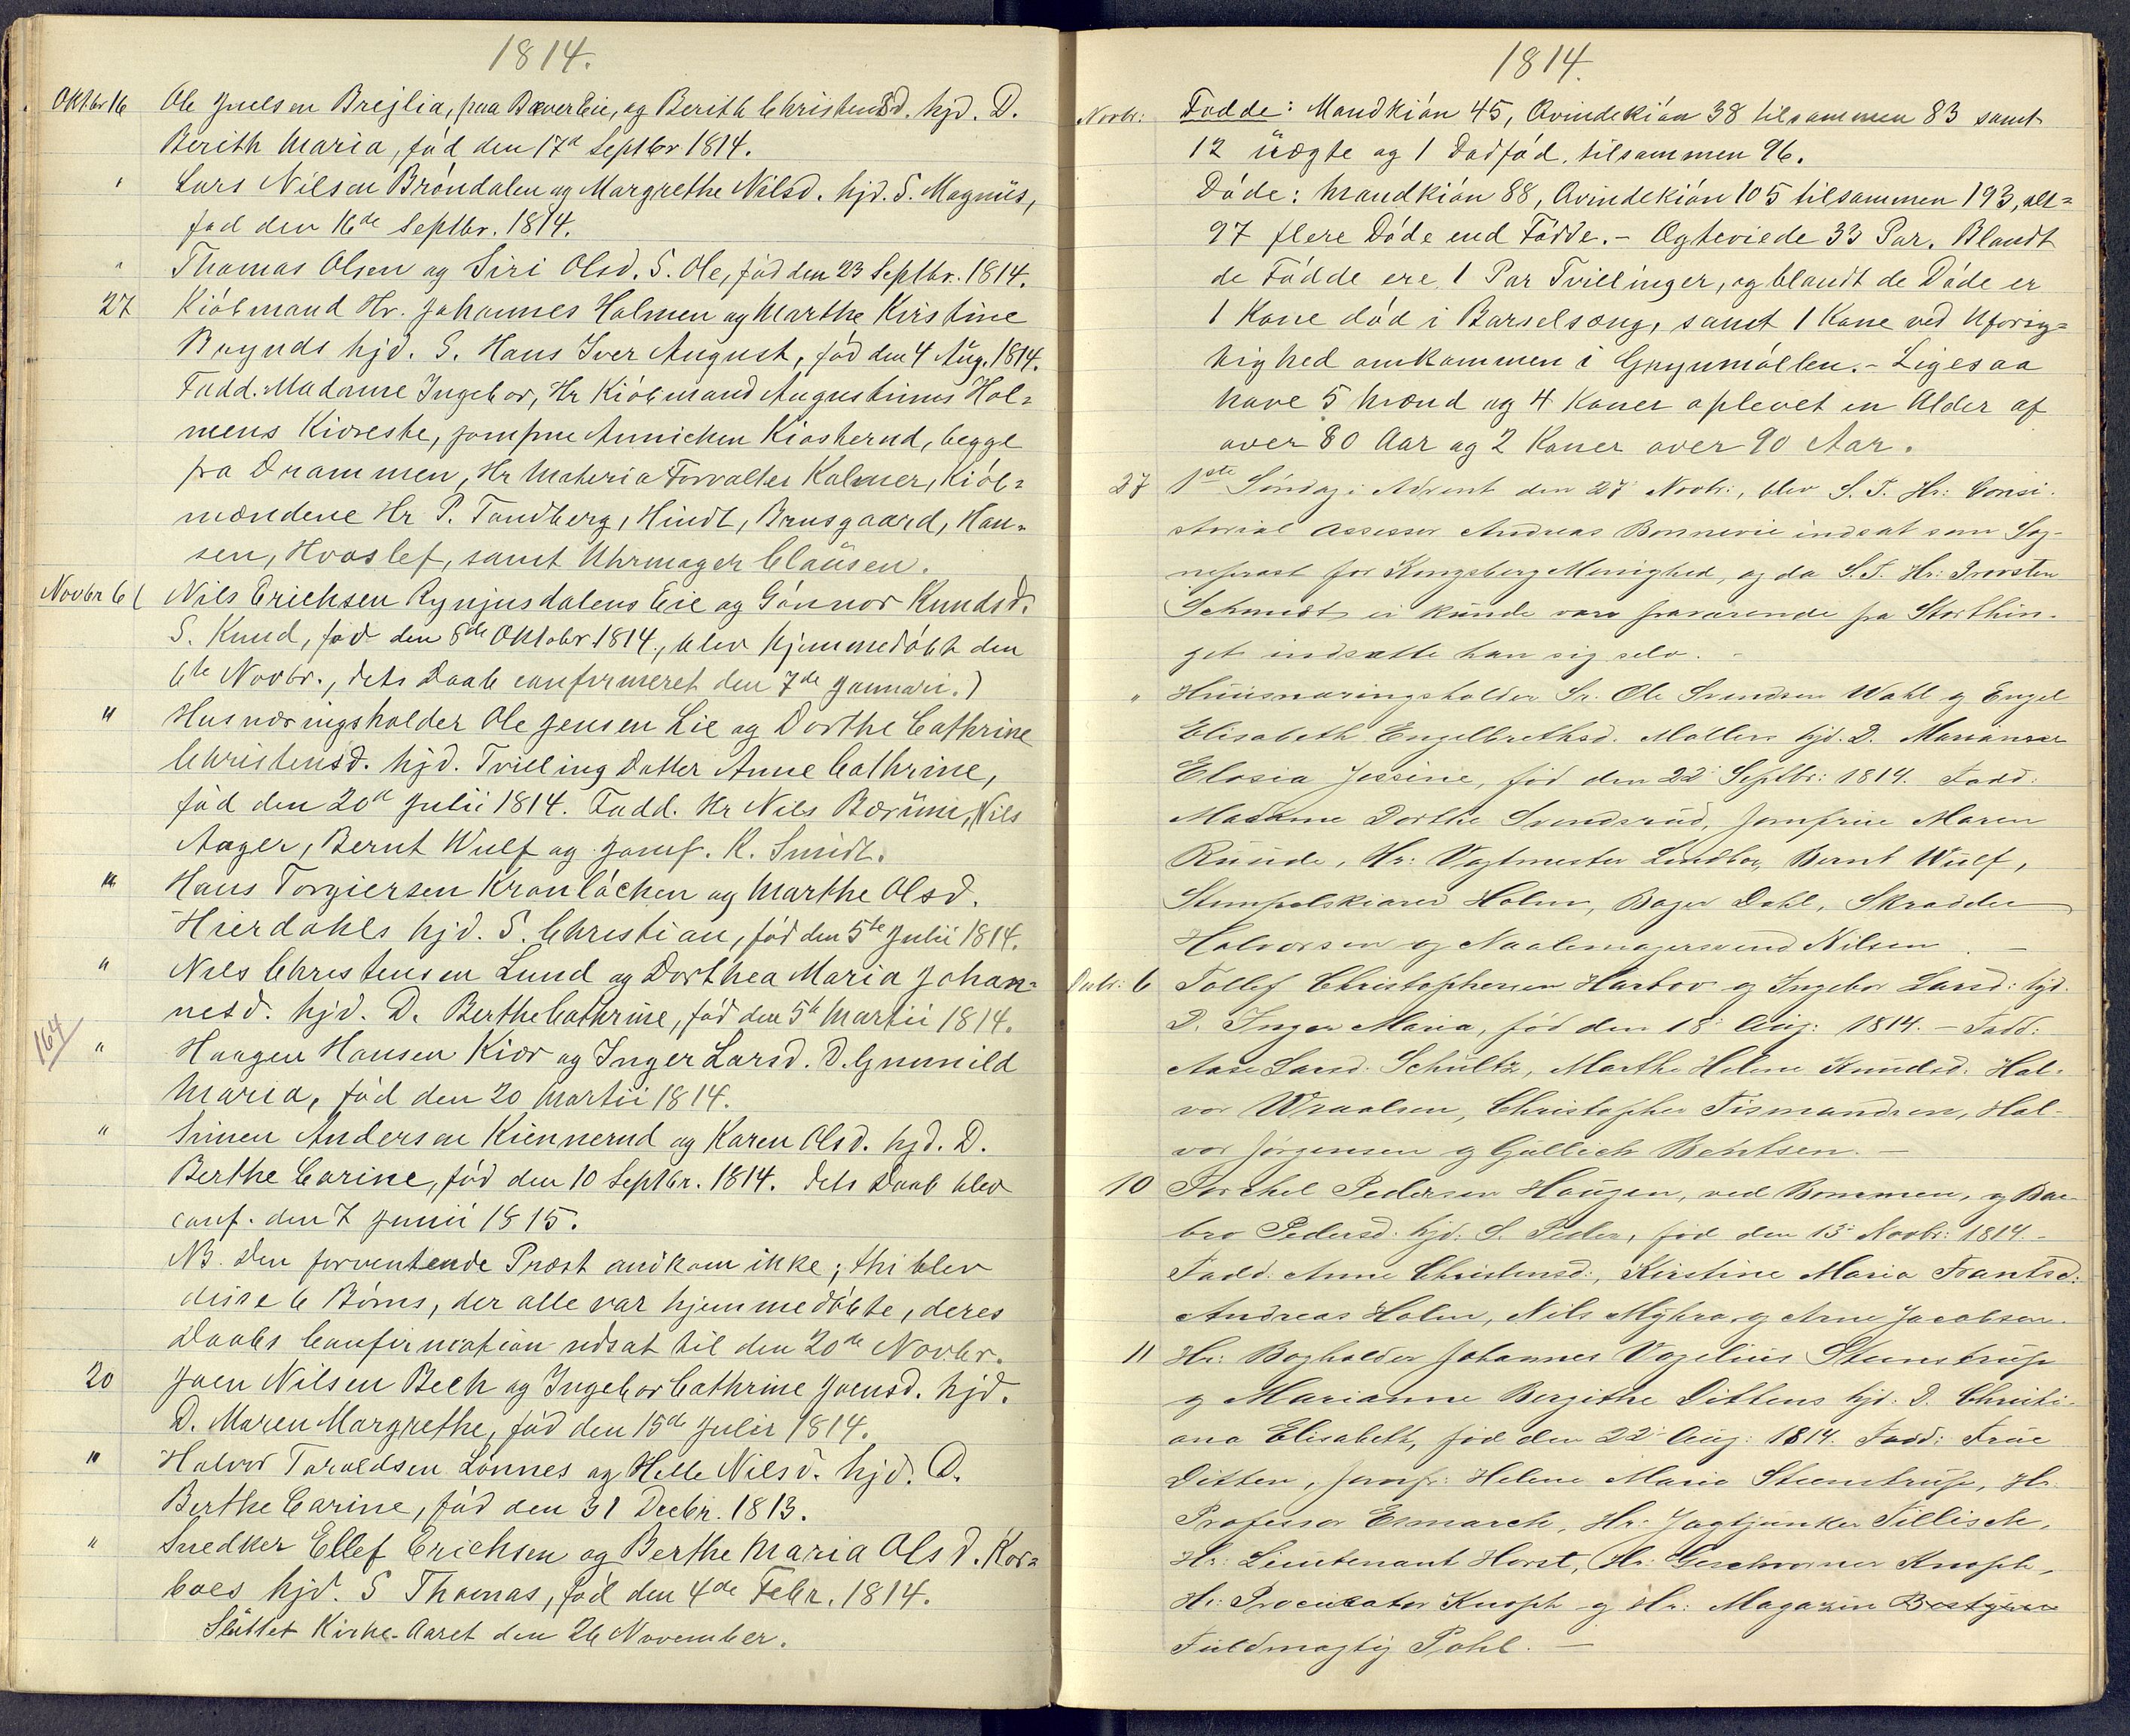 1814.
Oktbr 16 Ole Juelsen Brejlia, paa Bæver Eie, og Berith Christensd. hjd. D.
Berith Maria, fød den 17d Septbr 1814.
" Lars Nilsen Bröndalen og Margrethe Nilsd. hjd. S. Magnüs,
fød den 16de Septbr. 1814.
" Thomas Olsen og Siri Olsd. S. Ole, fød den 23 Septbr. 1814.
27 Kiöbmand Hr. Johannes Holmen og Marthe Kirstine
hjd. S. Hans Iver August, fød den 4 Aug. 1814.
Fadd. Madame Ingebor, Hr Kiöbmand Augustinus Hol=
mens Kiæreste, Jomfrue Annichen Kiosterud, begge
fra Drammen, Hr Materia Forvalter Kalmer, Kiöb=
mændene Hr P. Tandberg, Hindt, Brusgaard, Han=
sen, Hvoslef, samt Uhrmager Claüsen.
Novbr 6 ( Nils Erichsen Rynjusdalens Eie og Gönnor Knudsd.
S. Knud, fød den 8de Oktobr 1814, blev hjemmedöbt den
6te Novbr., dets Daab confirmeret den 7de Januari.)
" Husnæringsholder Ole Jensen Lie og Dorthe Cathrine
Christensd. hjd. Tvilling Datter Anne Cathrine,
fød den 20d Julii 1814. Fadd. Hr Nils Bærüm, Nils
Aager, Bernt Wulf og Jomf. K. Smidt.
" Hans Torgiersen Kronlöchen og Marthe Olsd.
Hierdahls hjd. S. Christian, fød den 5te Julii 1814.
" Nils Christensen Lund og Dorthea Maria Johan=
nesd. hjd. D. Berthe Cathrine, fød den 5te Martii 1814.
164
" Haagen Hansen Kiær og Inger Larsd. D. Gunnild
Maria, fød den 20 Martii 1814.
" Simen Andersen Kiennerud og Karen Olsd. hjd. D.
Berthe Carine, fød den 10 Septbr. 1814. dets Daab blev
conf. den 7 Junii 1815.
NB. den forventende Præst andkom ikke; thi blev
disse 6 Börns, der alle var hjemmedöbte, deres
Daabs Confirmation udsat til den 20de Novbr.
20 Joen Nilsen Bech og Ingebor Cathrine Joensd. hjd.
D. Maren Margrethe, fød den 15de Julii 1814.
" Halvor Taraldsen Lönnes og Helle Nilsd. hjd. D.
Berthe Carine, fød den 31 Decbr. 1813.
" Snedker Ellef Erichsen og Berthe Maria Olsd. Kor=
boes hjd. S Thomas, fød den 4de Febr. 1814.
Slüttet Kirke-Aaret den 26 November.
1814.
Novbr: Fødde: Mandkiön 45, Qvindekiön 38 tilsammen 83 samt
12 üægte og 1 Dødfød, tilsammen 96.
Döde: Mandkiön 88, Qvindekiön 105 tilsammen 193, alt=
97 flere Döde end Fødde. - Ægteviede 33 Par. Blandt
de Fødde ere 1 Par Tvillinger, og blandt de Döde er
1 Kone död i Barselsæng, samt 1 Kone ved Uforsig=
tighed omkommen i Grynmöllen. - Ligesaa
have 5 Mænd og 4 Koner oplevet en Alder af
over 80 Aar og 2 Koner over 90 Aar.
27 1ste Söndag i Advent den 27 Novbr:, blev S. T. Hr: Consi-
storial Assessor Andreas Bonnevie indsat som Sog-
neprest for Kongsberg Menighed, og da S. T. Hr: Provsten
Schmidt ei künde være nærværende fra Storthin-
get indsatte han sig selv. -
" Hüusnæringsholder Sr. Ole Svendsen Wahl og Engel
Elisabeth Engelbrethsd. Möllers hjd. D. Marianne
Elosia Jessine, fød den 22 Septbr: 1814. Fadd:
Madame Dorthe Svendsrüd, Jomfrüe Maren
Rüude, Hr: Vagtmester Lindboe, Bernt Wülf,
Stempelskiærer Holm, Bager Dahl, Skrædder
Halvorsen og Naalemagersvend Nilsen. -
Decbr: 6 Tollef Christophersen Harbov og Ingebor Larsd: hjd.
D. Inger Maria, fød den 18 Aug: 1814. - Fadd:
Aase Larsd. Schültz, Marthe Helene Knüdsd. Hal-
vor Wraalsen, Christopher Tismandsen, Hal-
vor Jörgensen og Güllich Bentsen. -
10 Torchel Pedersen Haügen, ved Bommen, og Bar-
bro Pedersd: hjd: S. Peder, fød den 13 Novbr: 1814. -
Fadd: Anne Christensd:, Kirstine Maria Frantsd:
Andreas Holm, Nils Myhra og Arne Jacobsen.
11 Hr: Bogholder Johannes Vogelius Steenstrüp
og Marianne Bergithe Dittens hjd: D. Christi-
ana Elisabeth, fød den 22 Aug: 1814. Fadd: Früe
Ditten, Jomfr: Helene Marie Steenstrüp, Hr.
Professor Esmarch, Hr: Jagtjunker Tillisch,
Hr: Lieutenant Horst, Hr: Geschworner Knoph,
Hr: Procurator Knoph og Hr: Magazin Bestyrer
Füldmægtig Pohl. -